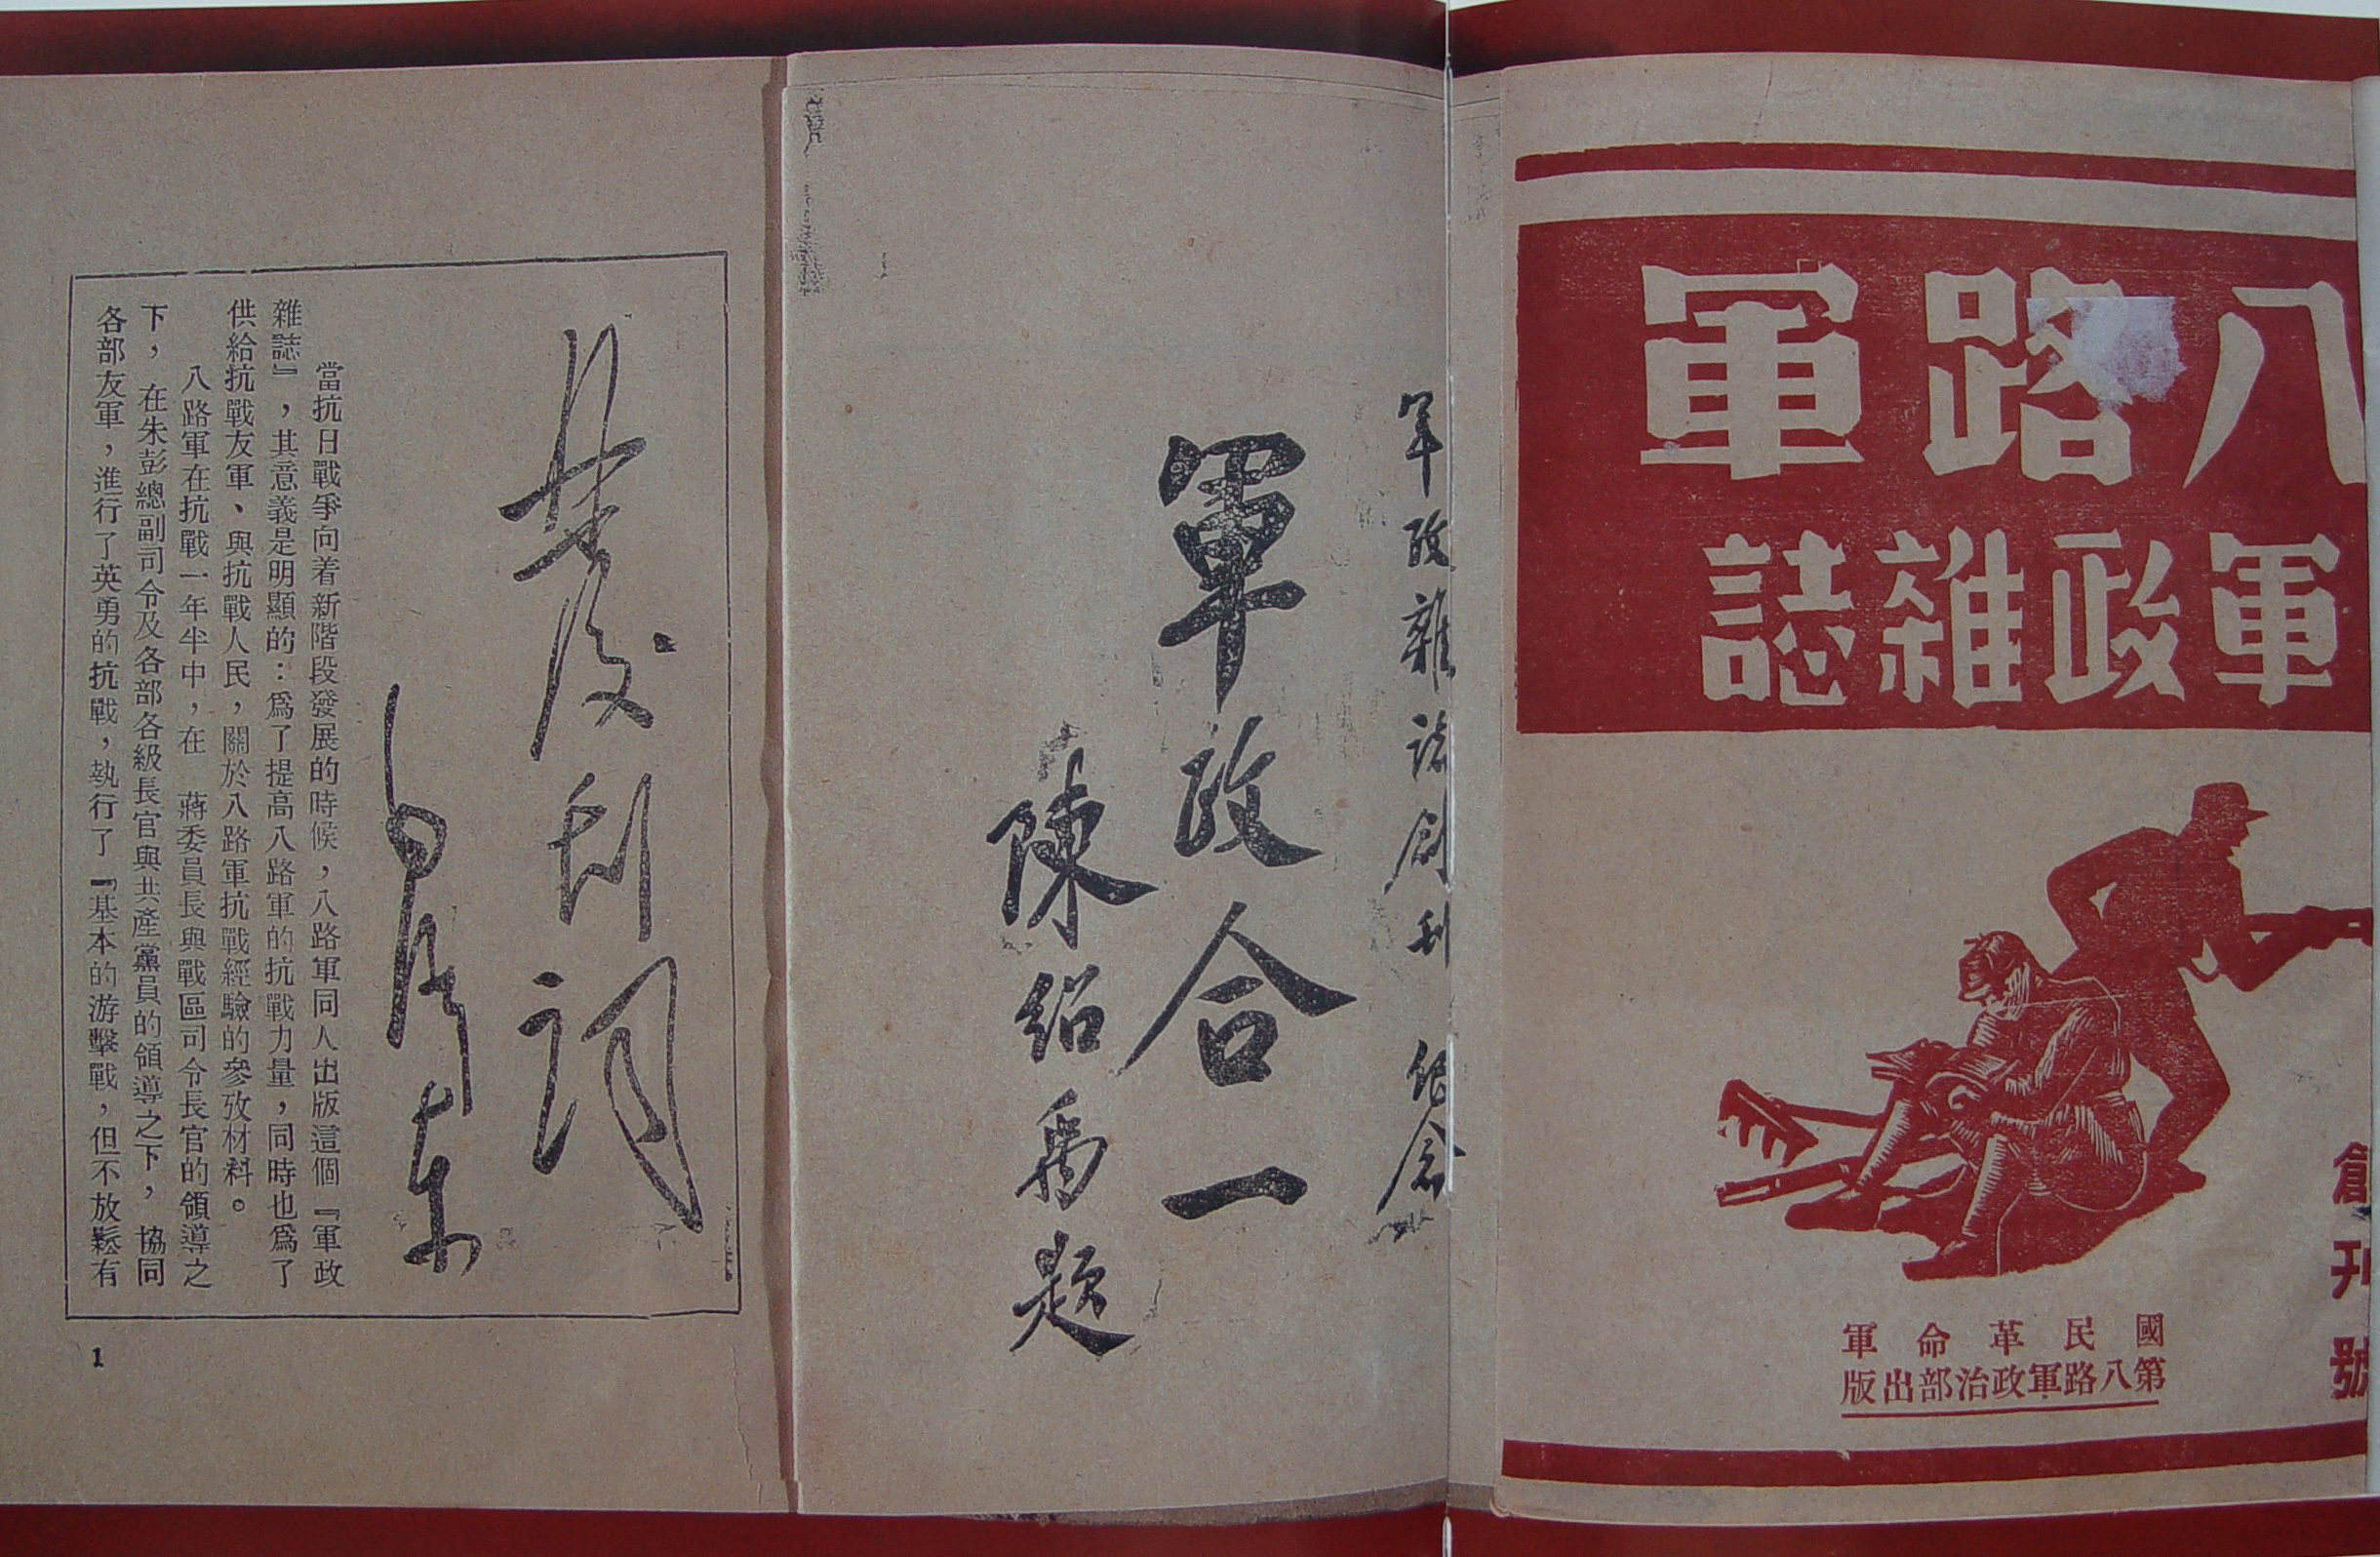 八路軍
軍政雜誌
創刊號
國民革命軍
第八路軍政治部出版
軍政雜誌創刊 紀念
軍政合一
陳紹禹題
發刊詞
毛澤東
當抗日戰爭向着新階段發展的時候，八路軍同人出版這個『軍政
雜誌』，其意義是明顯的：爲了提高八路軍的抗戰力量，同時也爲了
供給抗戰友軍、與抗戰人民，關於八路軍抗戰經驗的參攷材料。
八路軍在抗戰一年半中，在 蔣委員長與戰區司令長官的領導之
下，在朱彭總副司令及各部各級長官與共產黨員的領導之下，協同
各部友軍，進行了英勇的抗戰，執行了『基本的游擊戰，但不放鬆有
1